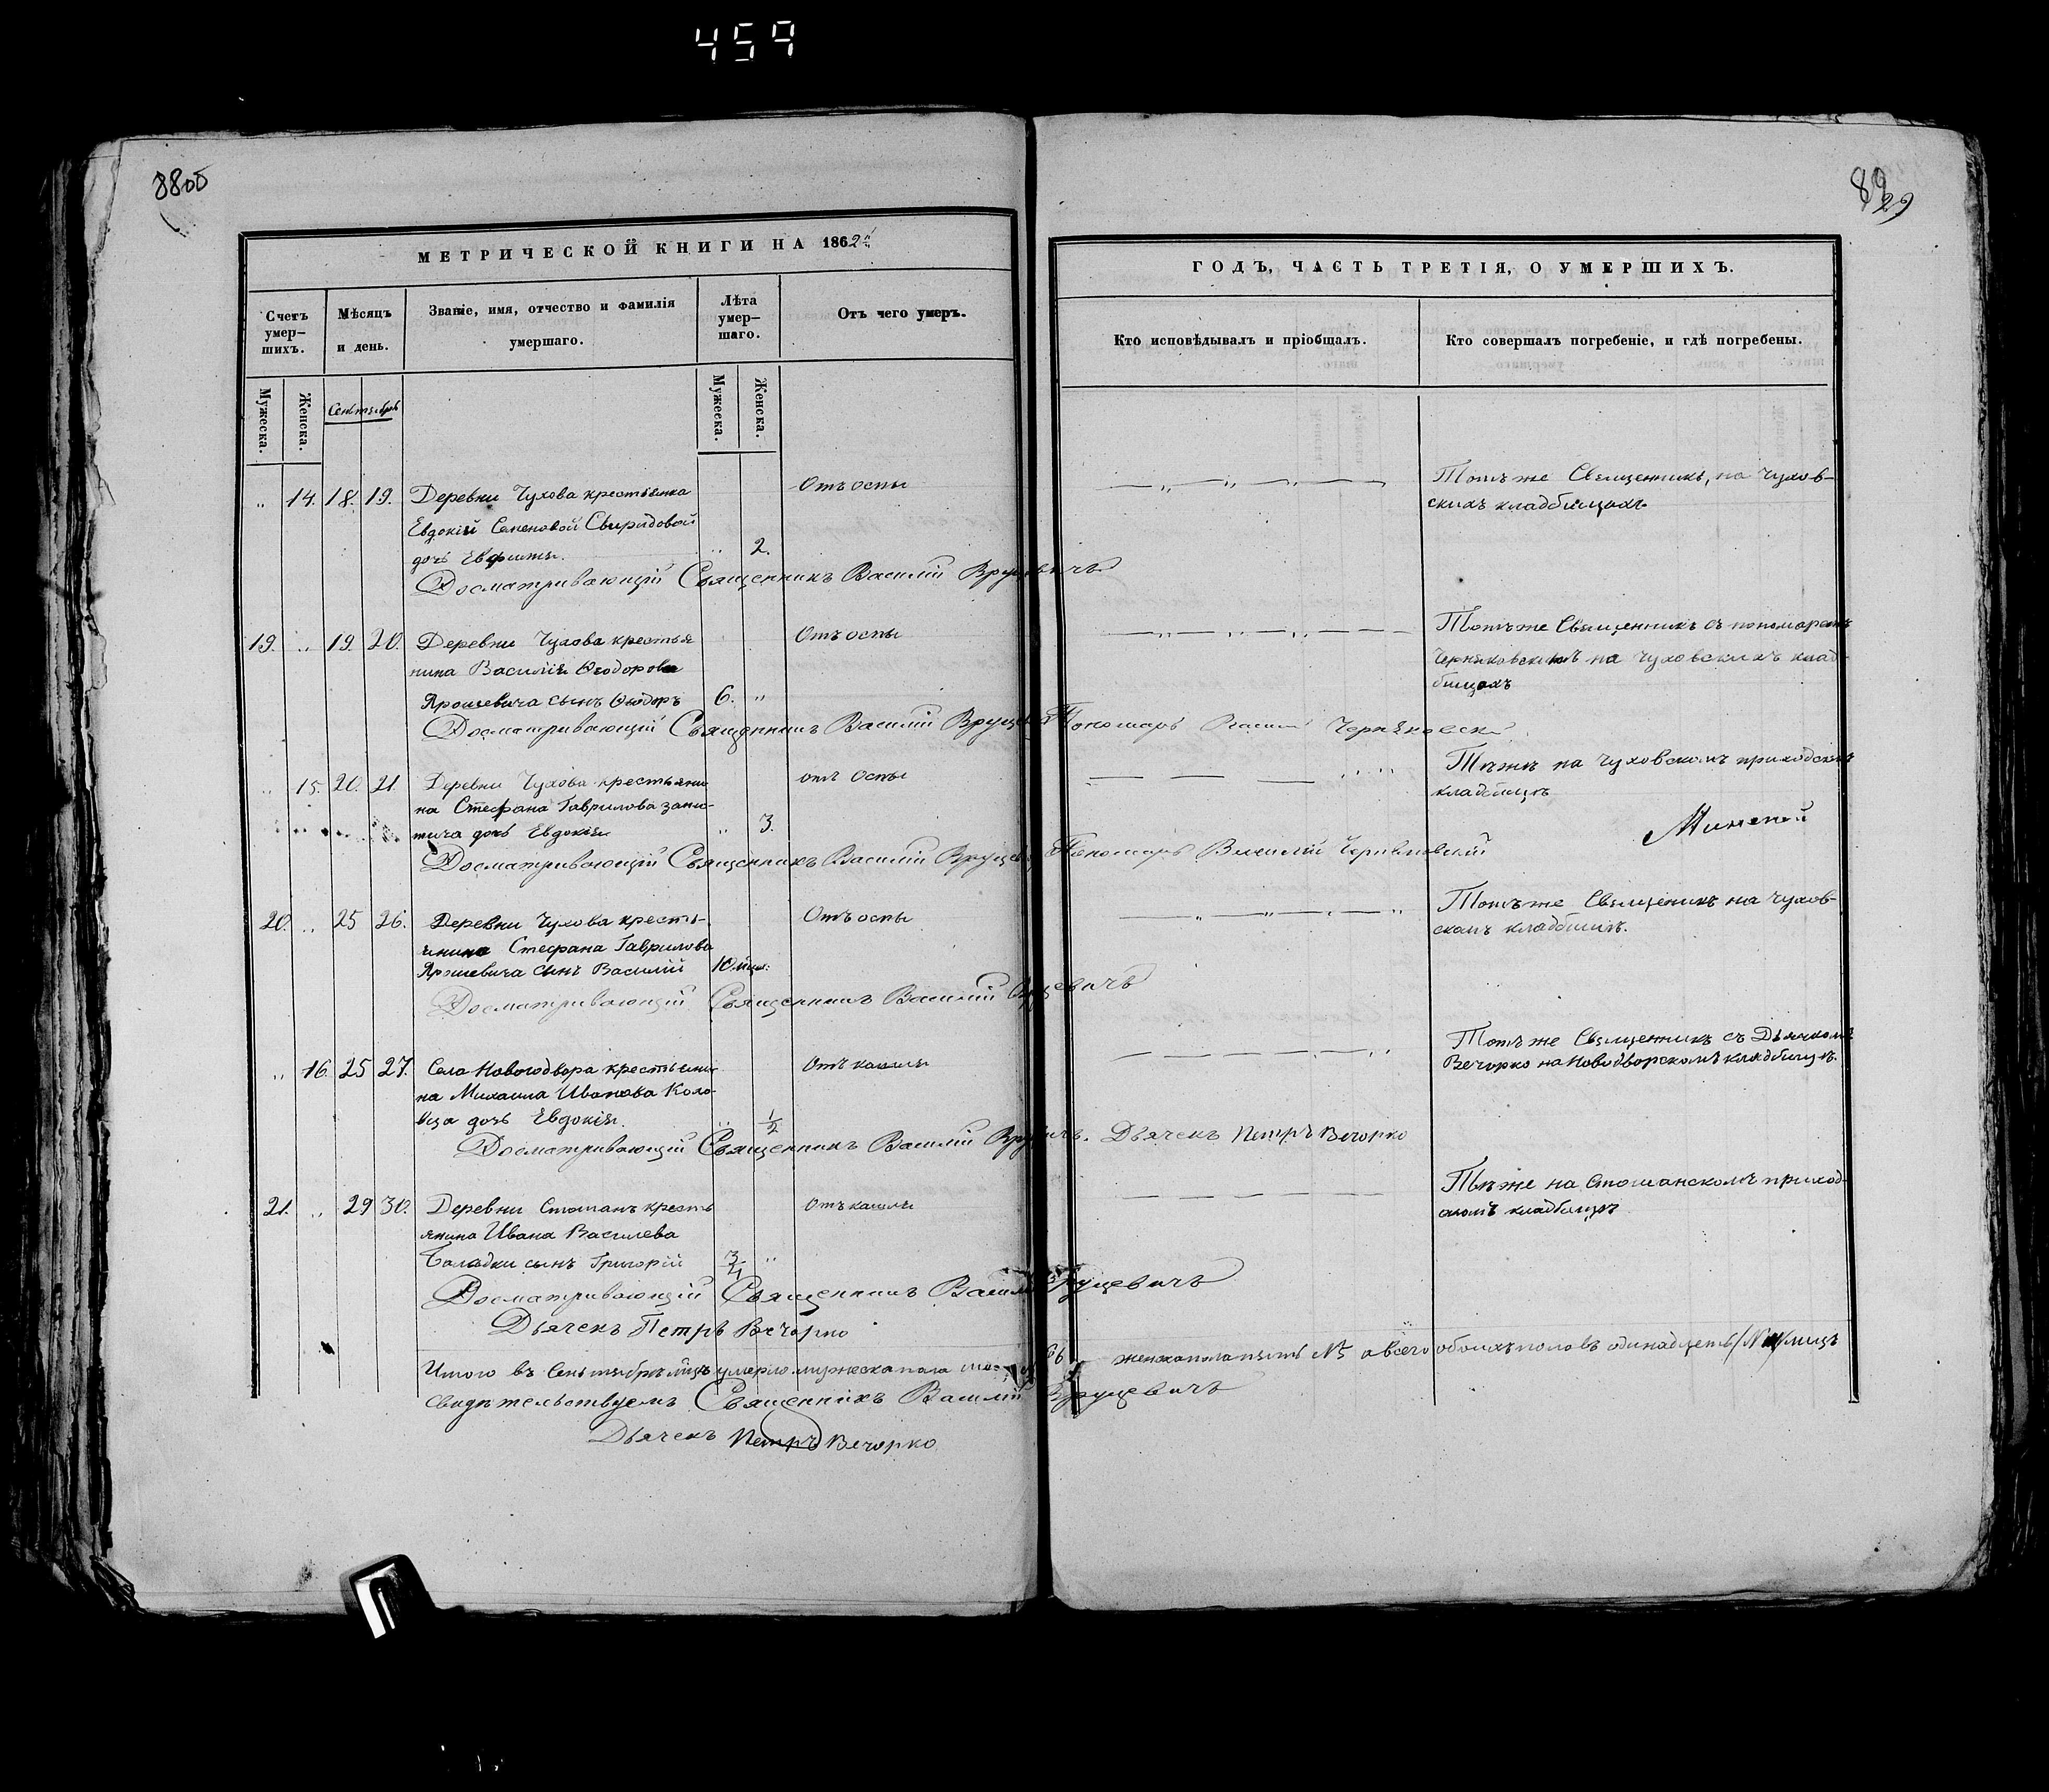 459
88об
МЕТРИЧЕСКОЙ КНИГИ НА 1862й
Счетъ умер-
шихъ.
Мѣсяцъ
и день.
Званіе, имя, отчество и фамилія
умершаго.
Лѣта
умер-
шаго.
Отъ чего умеръ.
Мужеска.
Женска.
Сентябрь
Мужеска.
Женска.
„ 14. 18. 19. Деревни Чухова крестьянка Отъ оспы
Евдокіи Семеновой Свиридовой
дочь . „ 2.
Досматривающій Священникъ Василій Вруцевичъ
19. „ 19. 20. Деревни Чухова крестья Отъ оспы
нина Василія Ѳеодорова
Ярошевича сынъ Ѳеодоръ 6. „
Досматривающій Священникъ Василій Вруцевичъ
„ 15. 20. 21. Деревни Чухова крестьяни отъ оспы
на Стефана Гаврилова
дочь Евдокія „ 3.
Досматривающій Священникъ Василій Вруцевичъ
20. „ 25 26. Деревни Чухова кресть- Отъ оспы
янина Стефана Гаврилова
Ярошевича сынъ Василій 10 мця:
Досматривающій Священникъ Василій Вруцевичъ
„ 16. 25 27. Села Новогодвора крестьяни Отъ кашля
на Михаила Иванова Коло
вца дочь Евдокія. „ 1/2
Досматривающій Священникъ Василій Вруцевичъ. Дьячекъ Петръ Вечорко
21. „ 29 30. Деревни Стошанъ кресть Отъ кашля
янина Ивана Василева
Баладки сынъ Григорій 3/4 „
Досматривающій Священникъ Василій Вруцевичъ
Дьячекъ Петръ Вечорко
Итого въ Сентябрѣ мцѣ умерло мужеска пола 6 женска пола пять №5 а всего обоихъ половъ одинадцеть лицъ
Свидѣтельствуемъ Священникъ Василій Вруцевичъ
Дьячекъ Петръ Вечорко
89
29
ГОДЪ, ЧАСТЬ ТРЕТІЯ, О УМЕРШИХЪ.
Кто исповѣдывалъ и пріобщалъ.
Кто совершалъ погребеніе, и гдѣ погребены.
Тотъ же Священникъ, на Чухов-
скихъ кладбищахъ
Тотъ же Священникъ съ пономаремъ
Черняковскимъ на Чуховскихъ клад
бищахъ
Пономарь Василій Черняковскій
Тѣже на Чуховскомъ приходскомъ
кладбищѣ
Минской
Пономарь Василій Черняковскій
Тотъ же Священикъ на Чухов-
скомъ кладбищѣ.
Тотъ же Священникъ съ Дьячкомъ
Вечорко на Новодворскомъ кладбищѣ.
Тѣже на Стошанскомъ приход
скомъ кладбищѣ